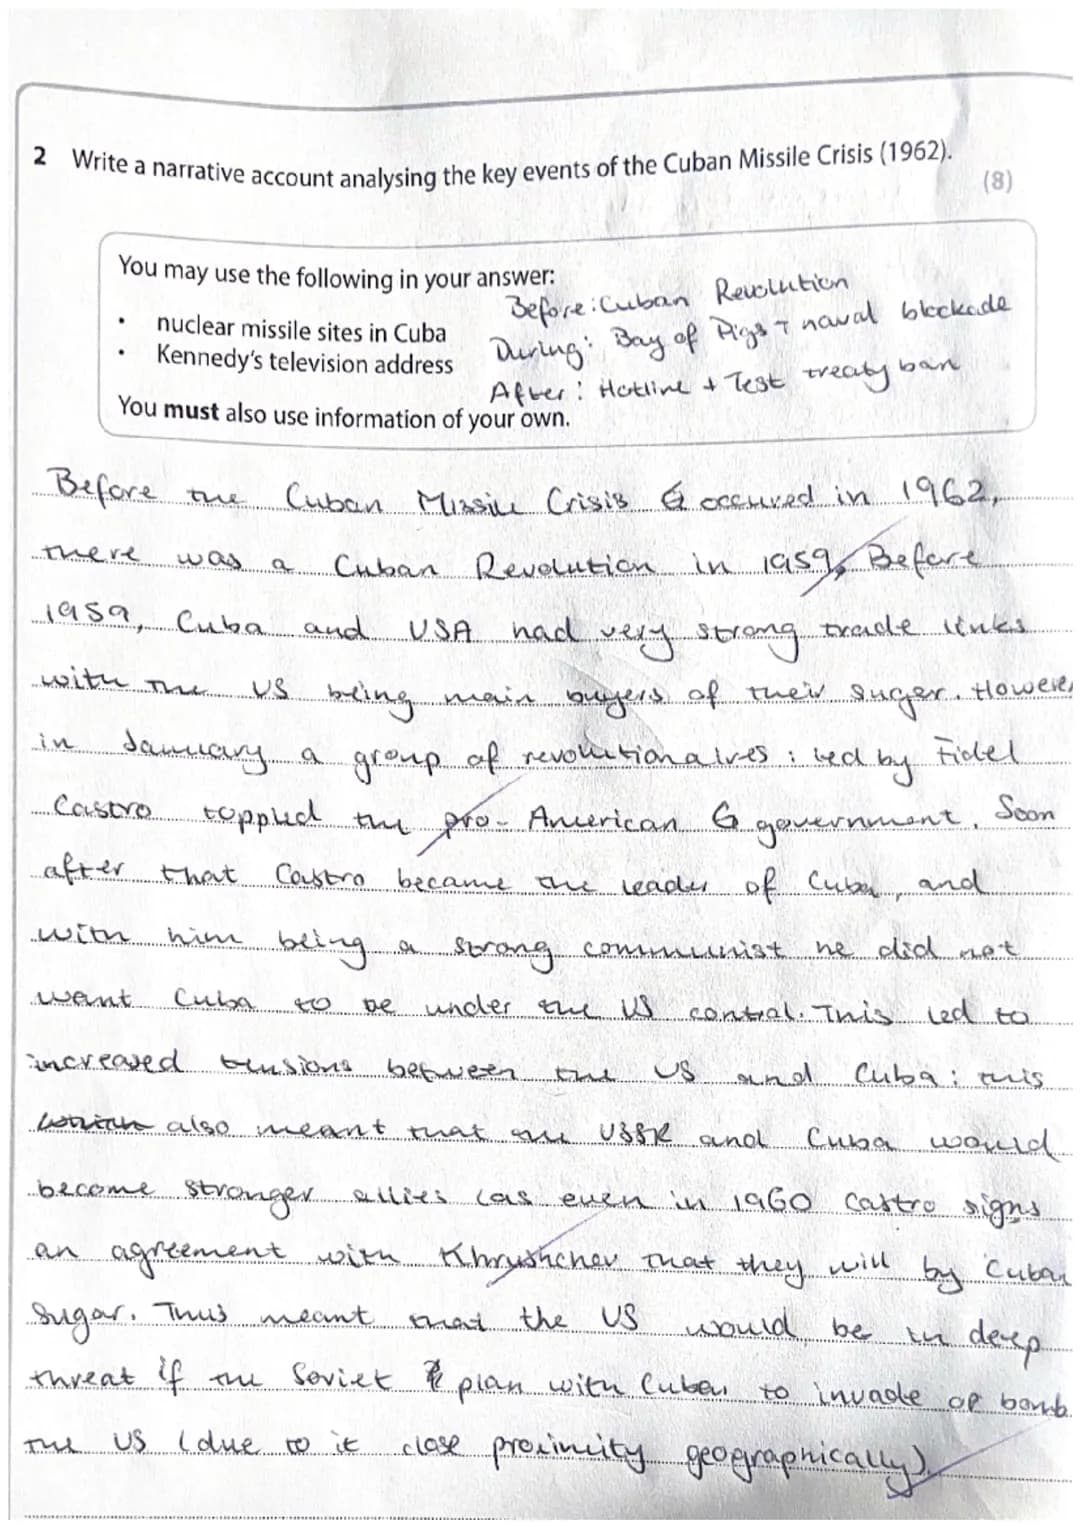 2 Write a narrative account analysing the key events of the Cuban Missile Crisis (1962).
(8)
You may use the following in your answer:
• nuclear missile sites in Cuba
• Kennedy's television address
You must also use information of your own.
Before: Cuban Revolution
During: Bay of Pigs + naval blockade
After: Hotline + Test treaty ban
Before the Cuban Missile Crisis occured in 1962,
there was a Cuban Revolution in 1959. Before
1959, Cuba and USA had very strong trade links
with the US being main buyers of their sugar. However
in January a group of revolutionaires : led by Fidel
Castro toppled the pro- American government. Soon
after that Castro became the leader of Cuba, and
with him being a strong communist he did not
want Cuba to be under the US control. This led to
increased tensions between the US and Cuba: this
which also meant that the USSR and Cuba would
become stronger allies (as even in 1960 Castro signs
an agreement with Khrushchev that they will by Cuban
Sugar. This meant that the US would be in deep
threat if the Soviet plan with Cuba to invade or bomb
the US (due to it close proximity geographically).